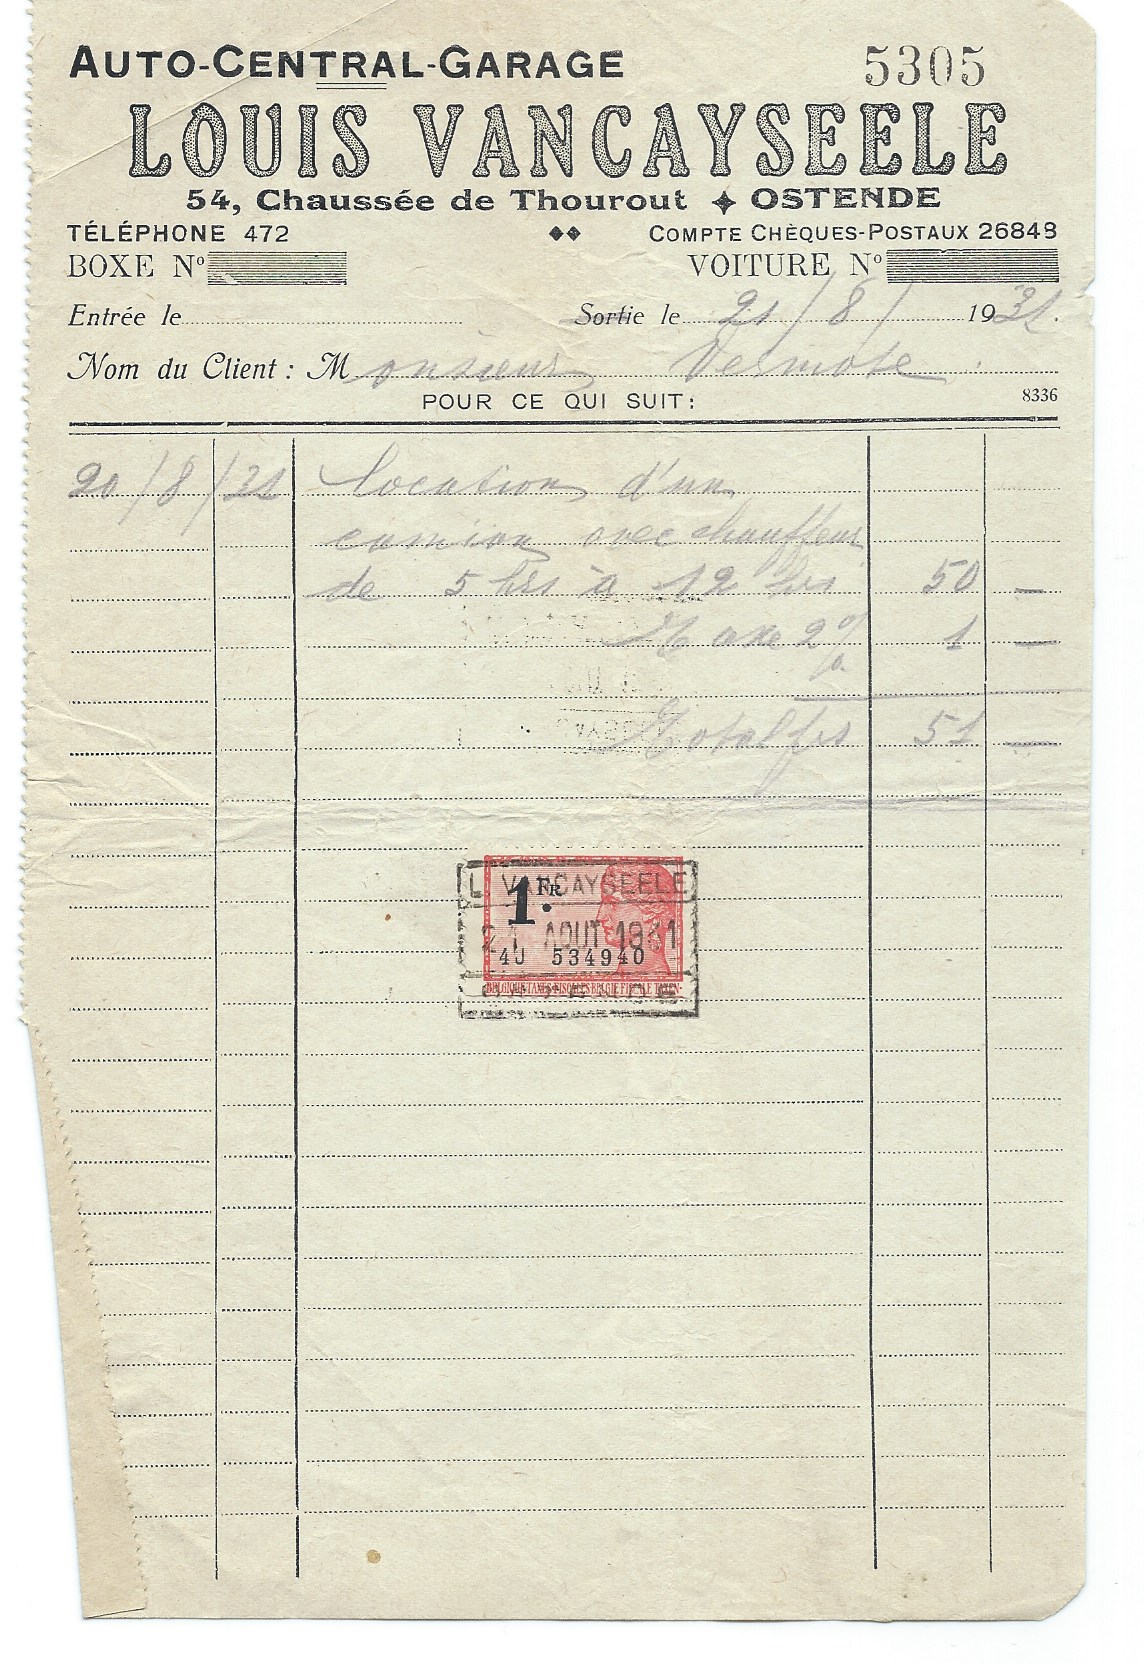 AUTO-CENTRAL-GARAGE 5305
LOUIS VANCAYSEELE
54, Chaussée de Thourout ✦ OSTENDE
TÉLÉPHONE 472 ◆◆ COMPTE CHÈQUES-POSTAUX 26848
BOXE Nº VOITURE Nº
Entrée le Sortie le 21/8/ 1931.
Nom du Client : Monsieur Vermote.
POUR CE QUI SUIT: 8336
20/8/31 Location d'un
camion avec chauffeur
de 5 hrs à 12 hrs 50 —
Taxe 2% 1 —
Total frs 51 —
1 FR.
L. VANCAYSEELE
21 AOUT 1931
4U 534940
BELGIQUE TAXES FISCALES BELGIE FISCALE TAXEN
OSTENDE